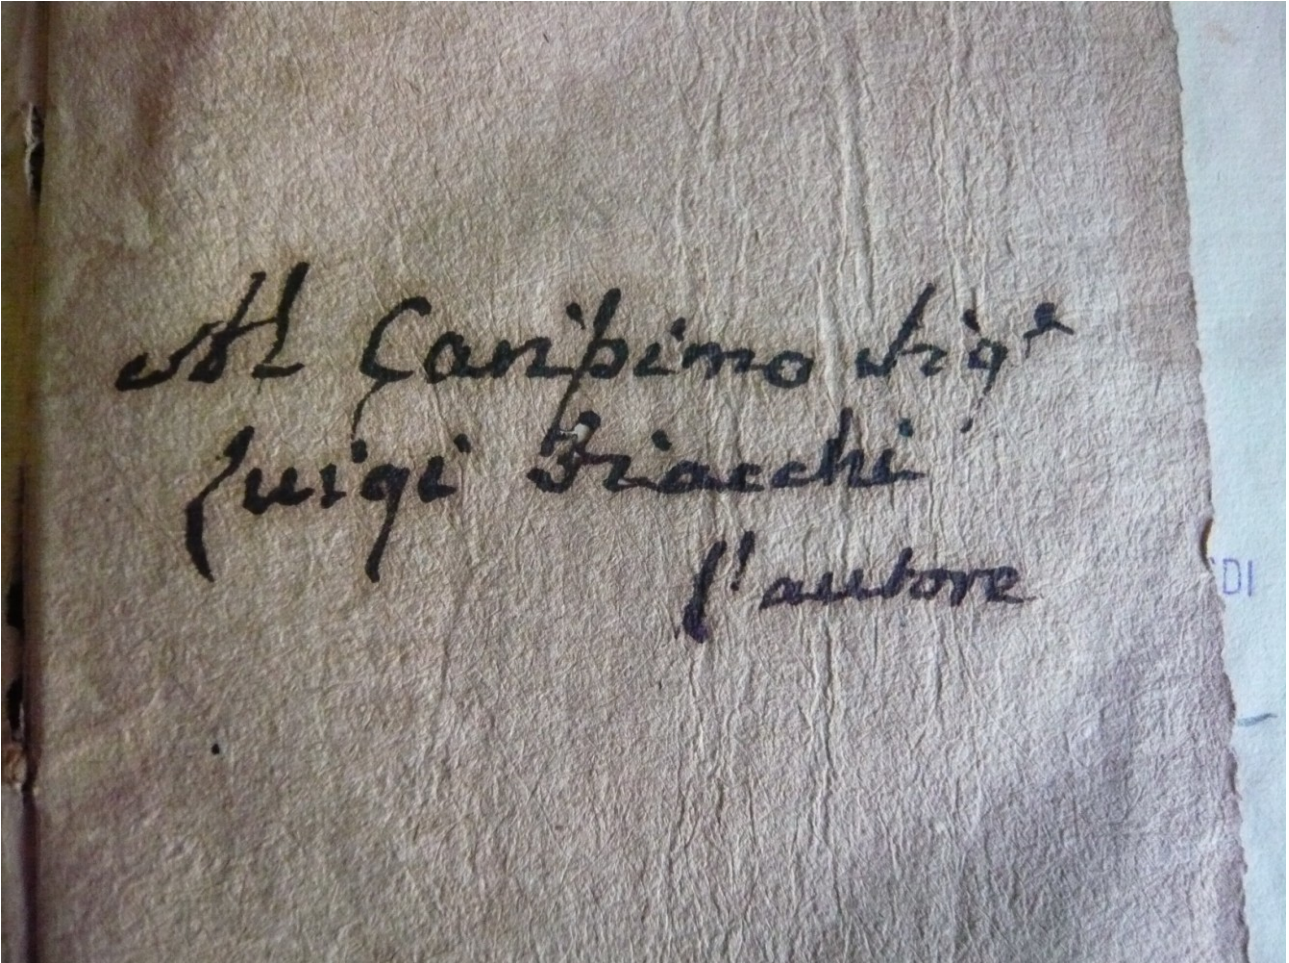 Al Carissimo Sigʳ
Luigi Biacchi
l'autore
DI